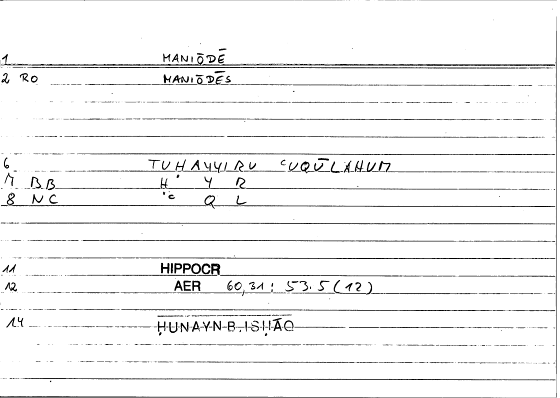 1 MANIŌDĒ
2 RO MANIŌDĒS
6 TUḤAYYIRU ʿUQŪLAHUM
7 BB Ḥ Y R
8 NC ʿ Q L
11 HIPPOCR
12 AER 60,31: 53.5(12)
14 ḤUNAYN B. ISḤĀQ